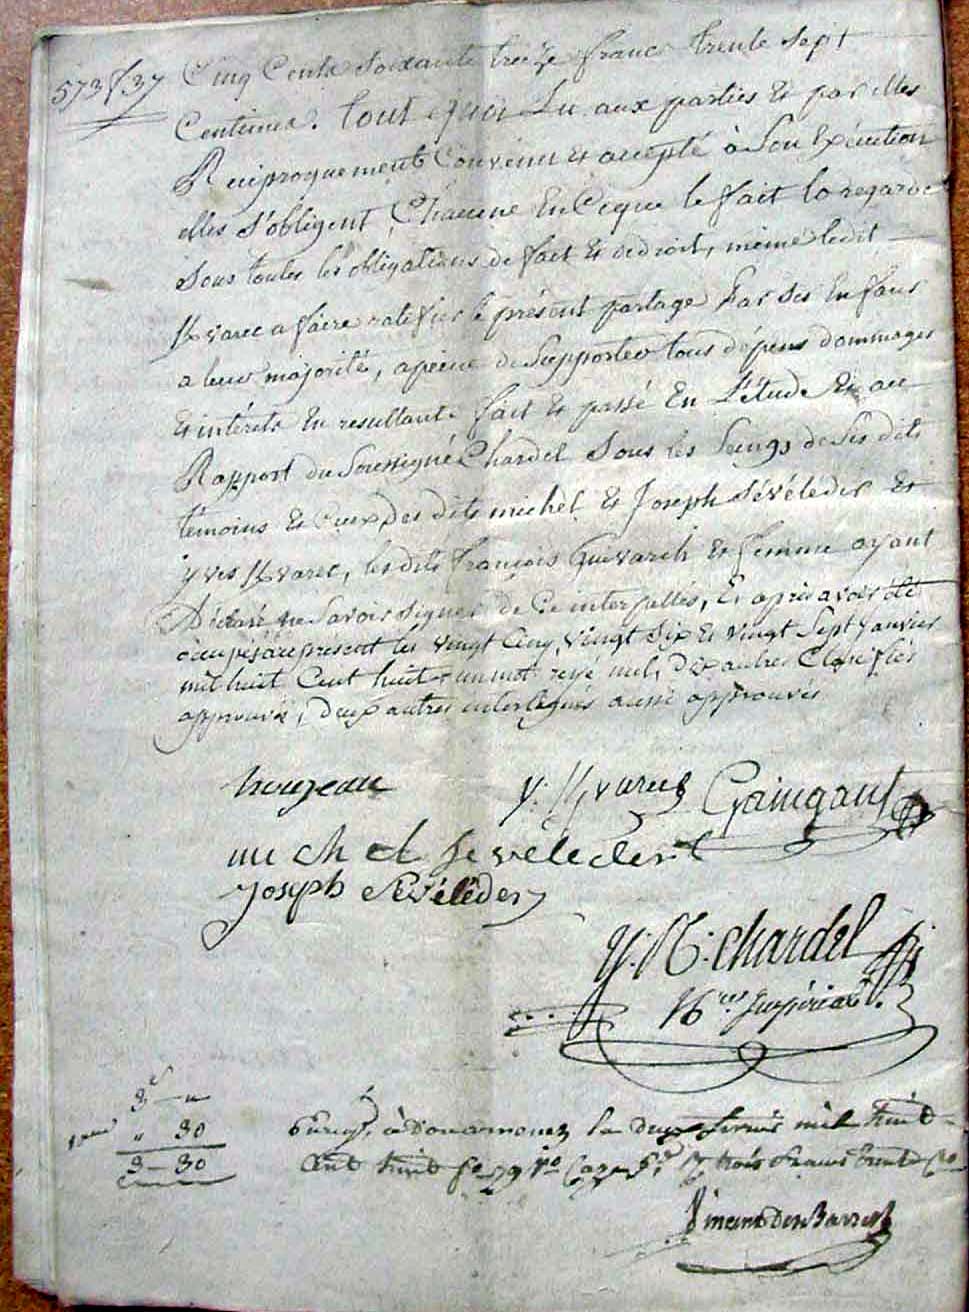 573f 37 Cinq Cents Soixante treize franc trente Sept
Centimes. Tout quoi Lu aux parties et par elles
Reciproquement Convenu et accepté à Son Exécution
elles S'obligent Chacune En Ceque le fait la regarde
Sous toutes les obligations de fait et de droit, même ledit
a faire ratifier le présent partage Par Ses Enfans
a leur majorité, a peine de Supporter tous dépens dommages
et intérêts En resultants fait et passé En L'étude Et au
Rapport du Soussigné Chardel Sous les Seings de Ses dits
témoins et Ceux des dits michel et Joseph Sévélédér et
yves, les dits françois et femme ayant
Déclaré ne Savoir Signer de Ce interpellés, Et après avoir été
occupés à représent les vingt Cinq, vingt Six et vingt Sept janvier
mil huit Cent huit un mot rayé nul, dix autres
approuvés, Deux autres interlignés aussi approuvés
y: Gaingant
michel Sevelederc
Joseph Sévéléder
Y: M: Chardel
Nre Impérial.
3 - "
" 30
3 - 30
à Douarnenez le deux fevrier mil huit
Cent huit fo 79 vo Case trois francs trente
Vincent